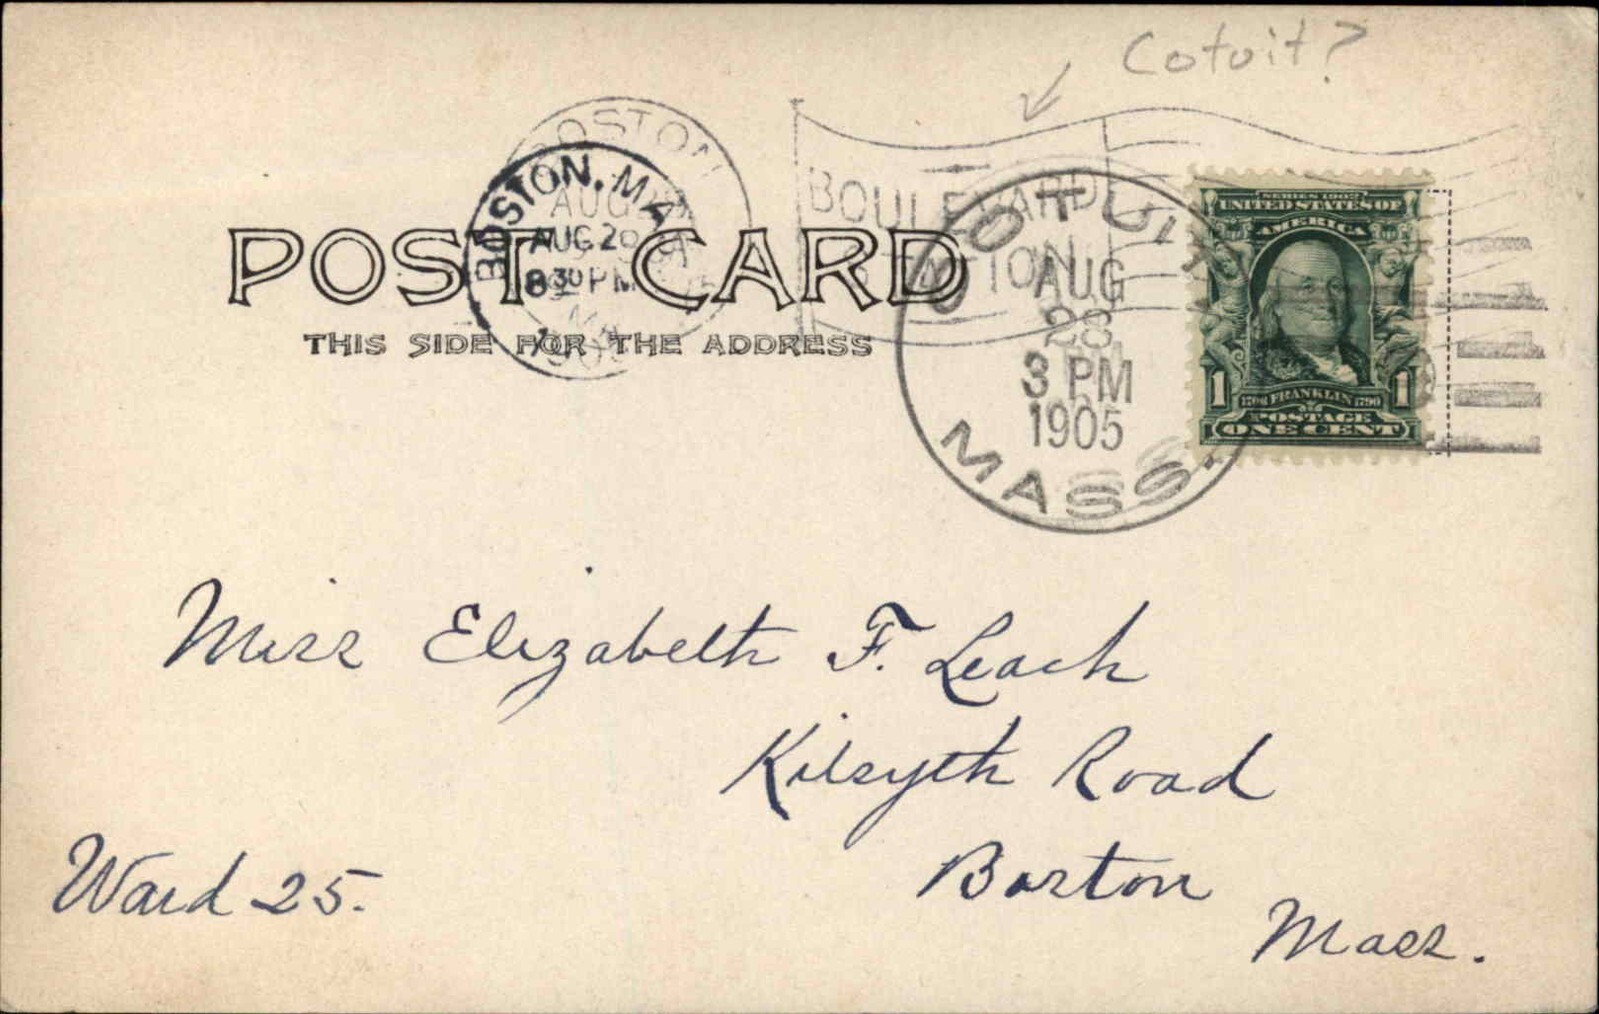 Cotuit?
BOSTON
BOSTON, MA
AUG 2
8 30 PM
BOULEVARD
STATION
COTUIT
AUG
28
3 PM
1905
MASS.
SERIES 1902
UNITED STATES OF
AMERICA
1 1
1706 FRANKLIN 1790
POSTAGE
ONE CENT
POST CARD
THIS SIDE FOR THE ADDRESS
Miss Elizabeth F. Leach
Kilsyth Road
Boston
Mass.
Ward 25.